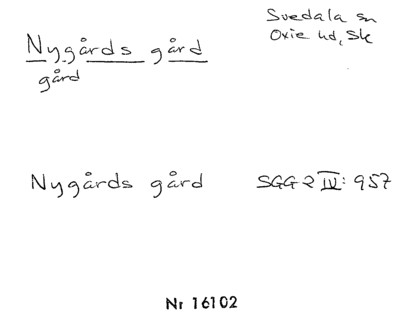 Nygårds gård
gård
Svedala sn
Oxie hd, Sk
Nygårds gård SGG 2 IV: 957
Nr 16102